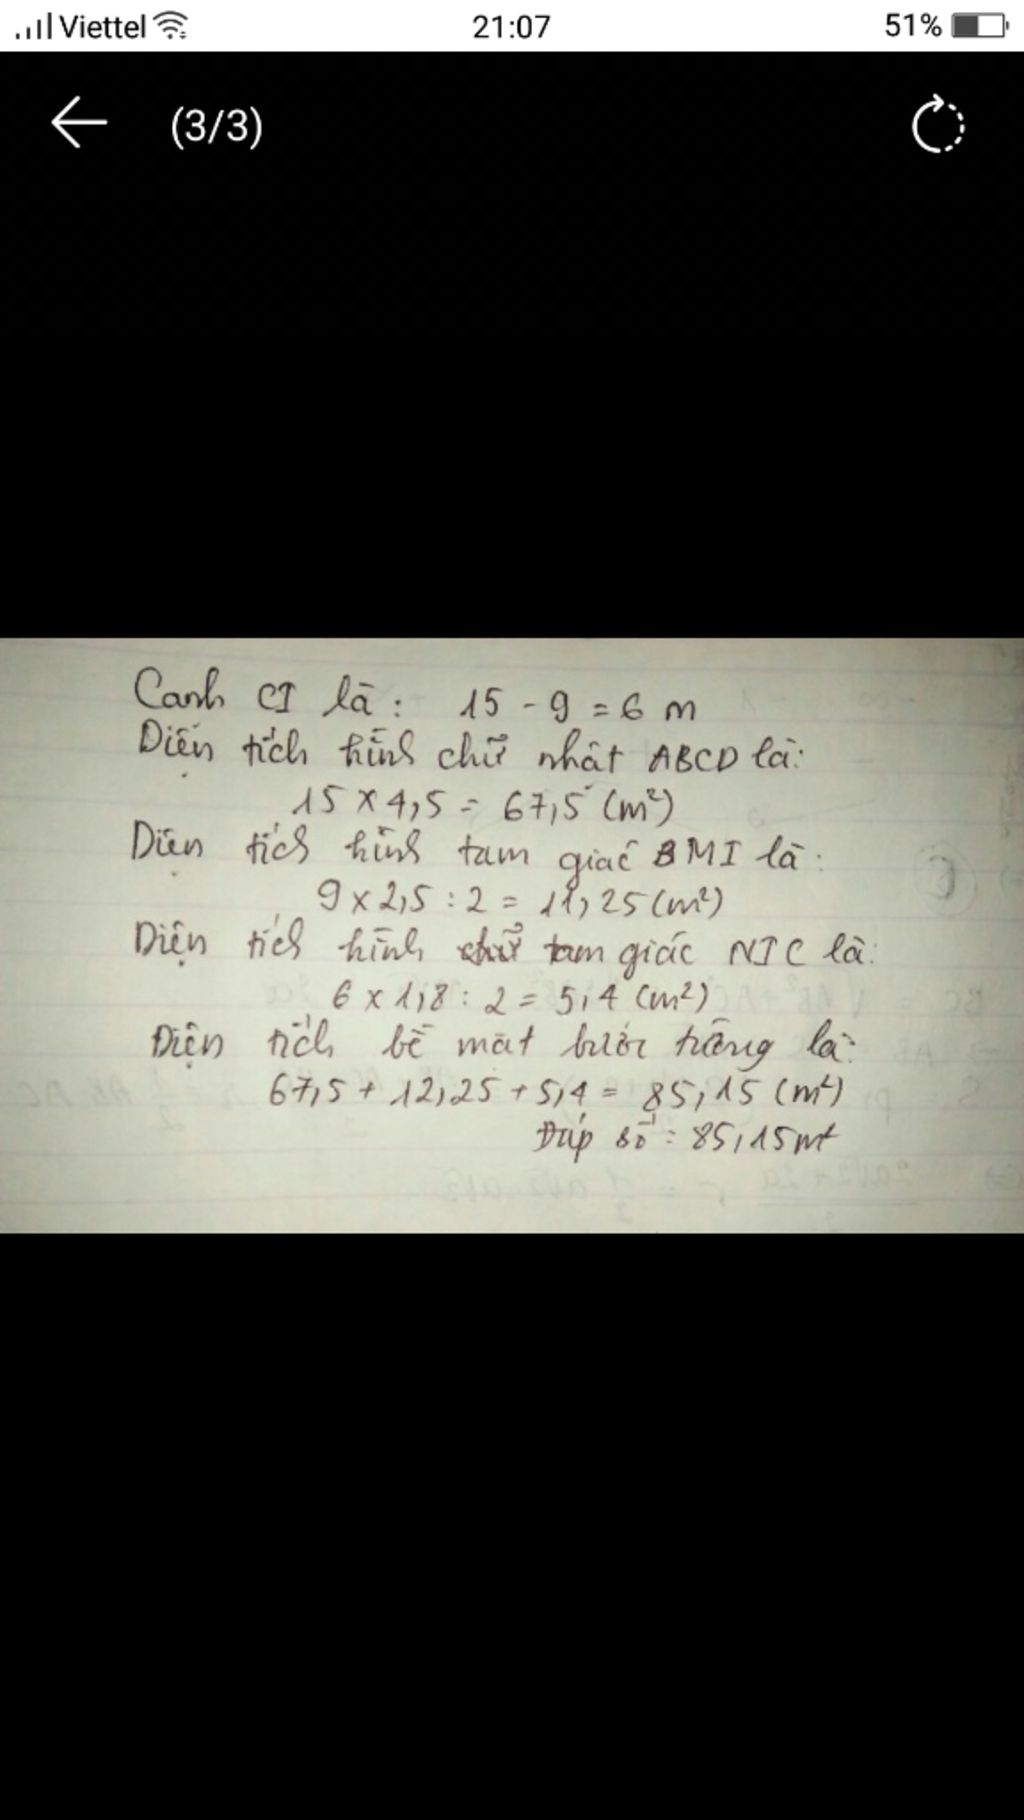 Viettel 21:07 51%
(3/3)
Canh CI là: 15 - 9 = 6 m
Diện tích hình chữ nhật ABCD là:
15 x 4,5 = 67,5 (m²)
Diện tích hình tam giác BMI là:
9 x 2,5 : 2 = 11,25 (m²)
Diện tích hình tam giác NIC là:
6 x 1,8 : 2 = 5,4 (m²)
Diện tích bề mặt bước tường là:
67,5 + 12,25 + 5,4 = 85,15 (m²)
Đáp số: 85,15 m²